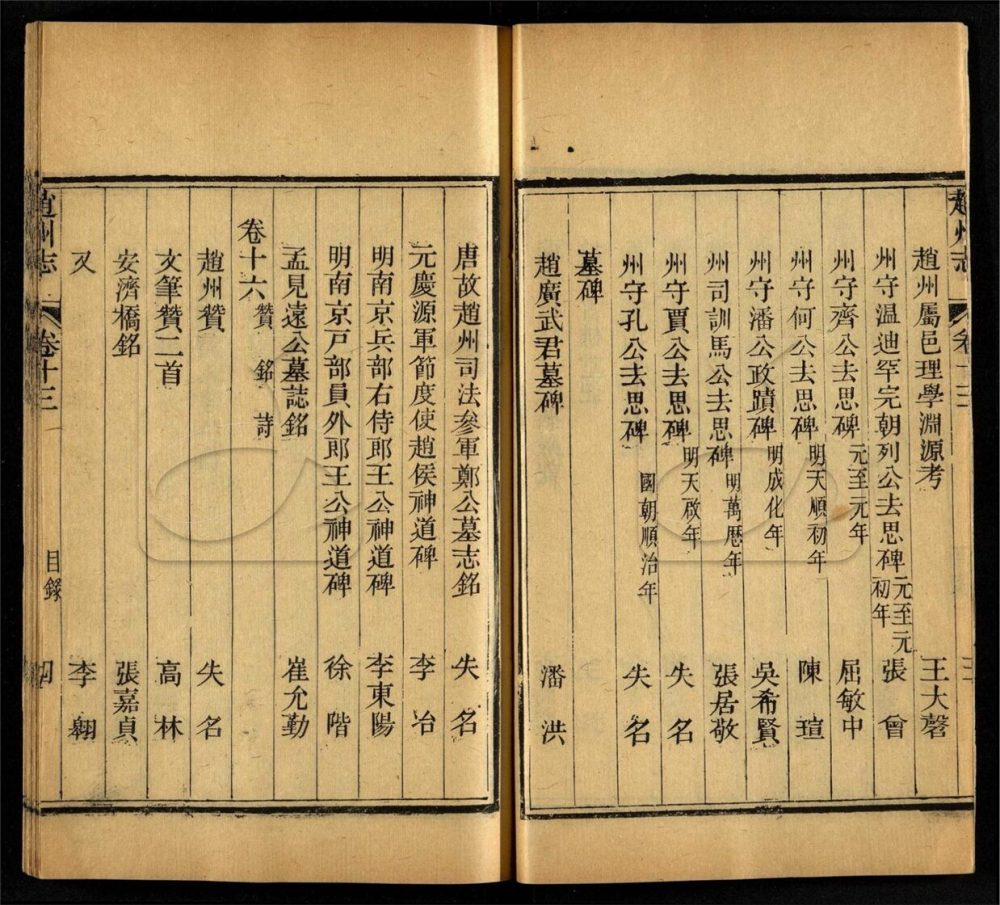 趙州志 卷十三 三
趙州屬邑理學淵源考 王大磬
州守温迪罕完朝列公去思碑 元至元初年 張曾
州守齊公去思碑 元至元年 屈敏中
州守何公去思碑 明天順初年 陳瑄
州守潘公政蹟碑 明成化年 吳希賢
州司訓馬公去思碑 明萬曆年 張居敬
州守賈公去思碑 明天啟年 失名
州守孔公去思碑 國朝順治年 失名
墓碑
趙廣武君墓碑 潘洪
唐故趙州司法參軍鄭公墓志銘 失名
元慶源軍節度使趙侯神道碑 李冶
明南京兵部右侍郎王公神道碑 李東陽
明南京戸部員外郎王公神道碑 徐階
孟見遠公墓誌銘 崔允勤
卷十六 贊 銘 詩
趙州贊 失名
文筆贊二首 高林
安濟橋銘 張嘉貞
又 李翱
趙州志 卷十三 目錄 四